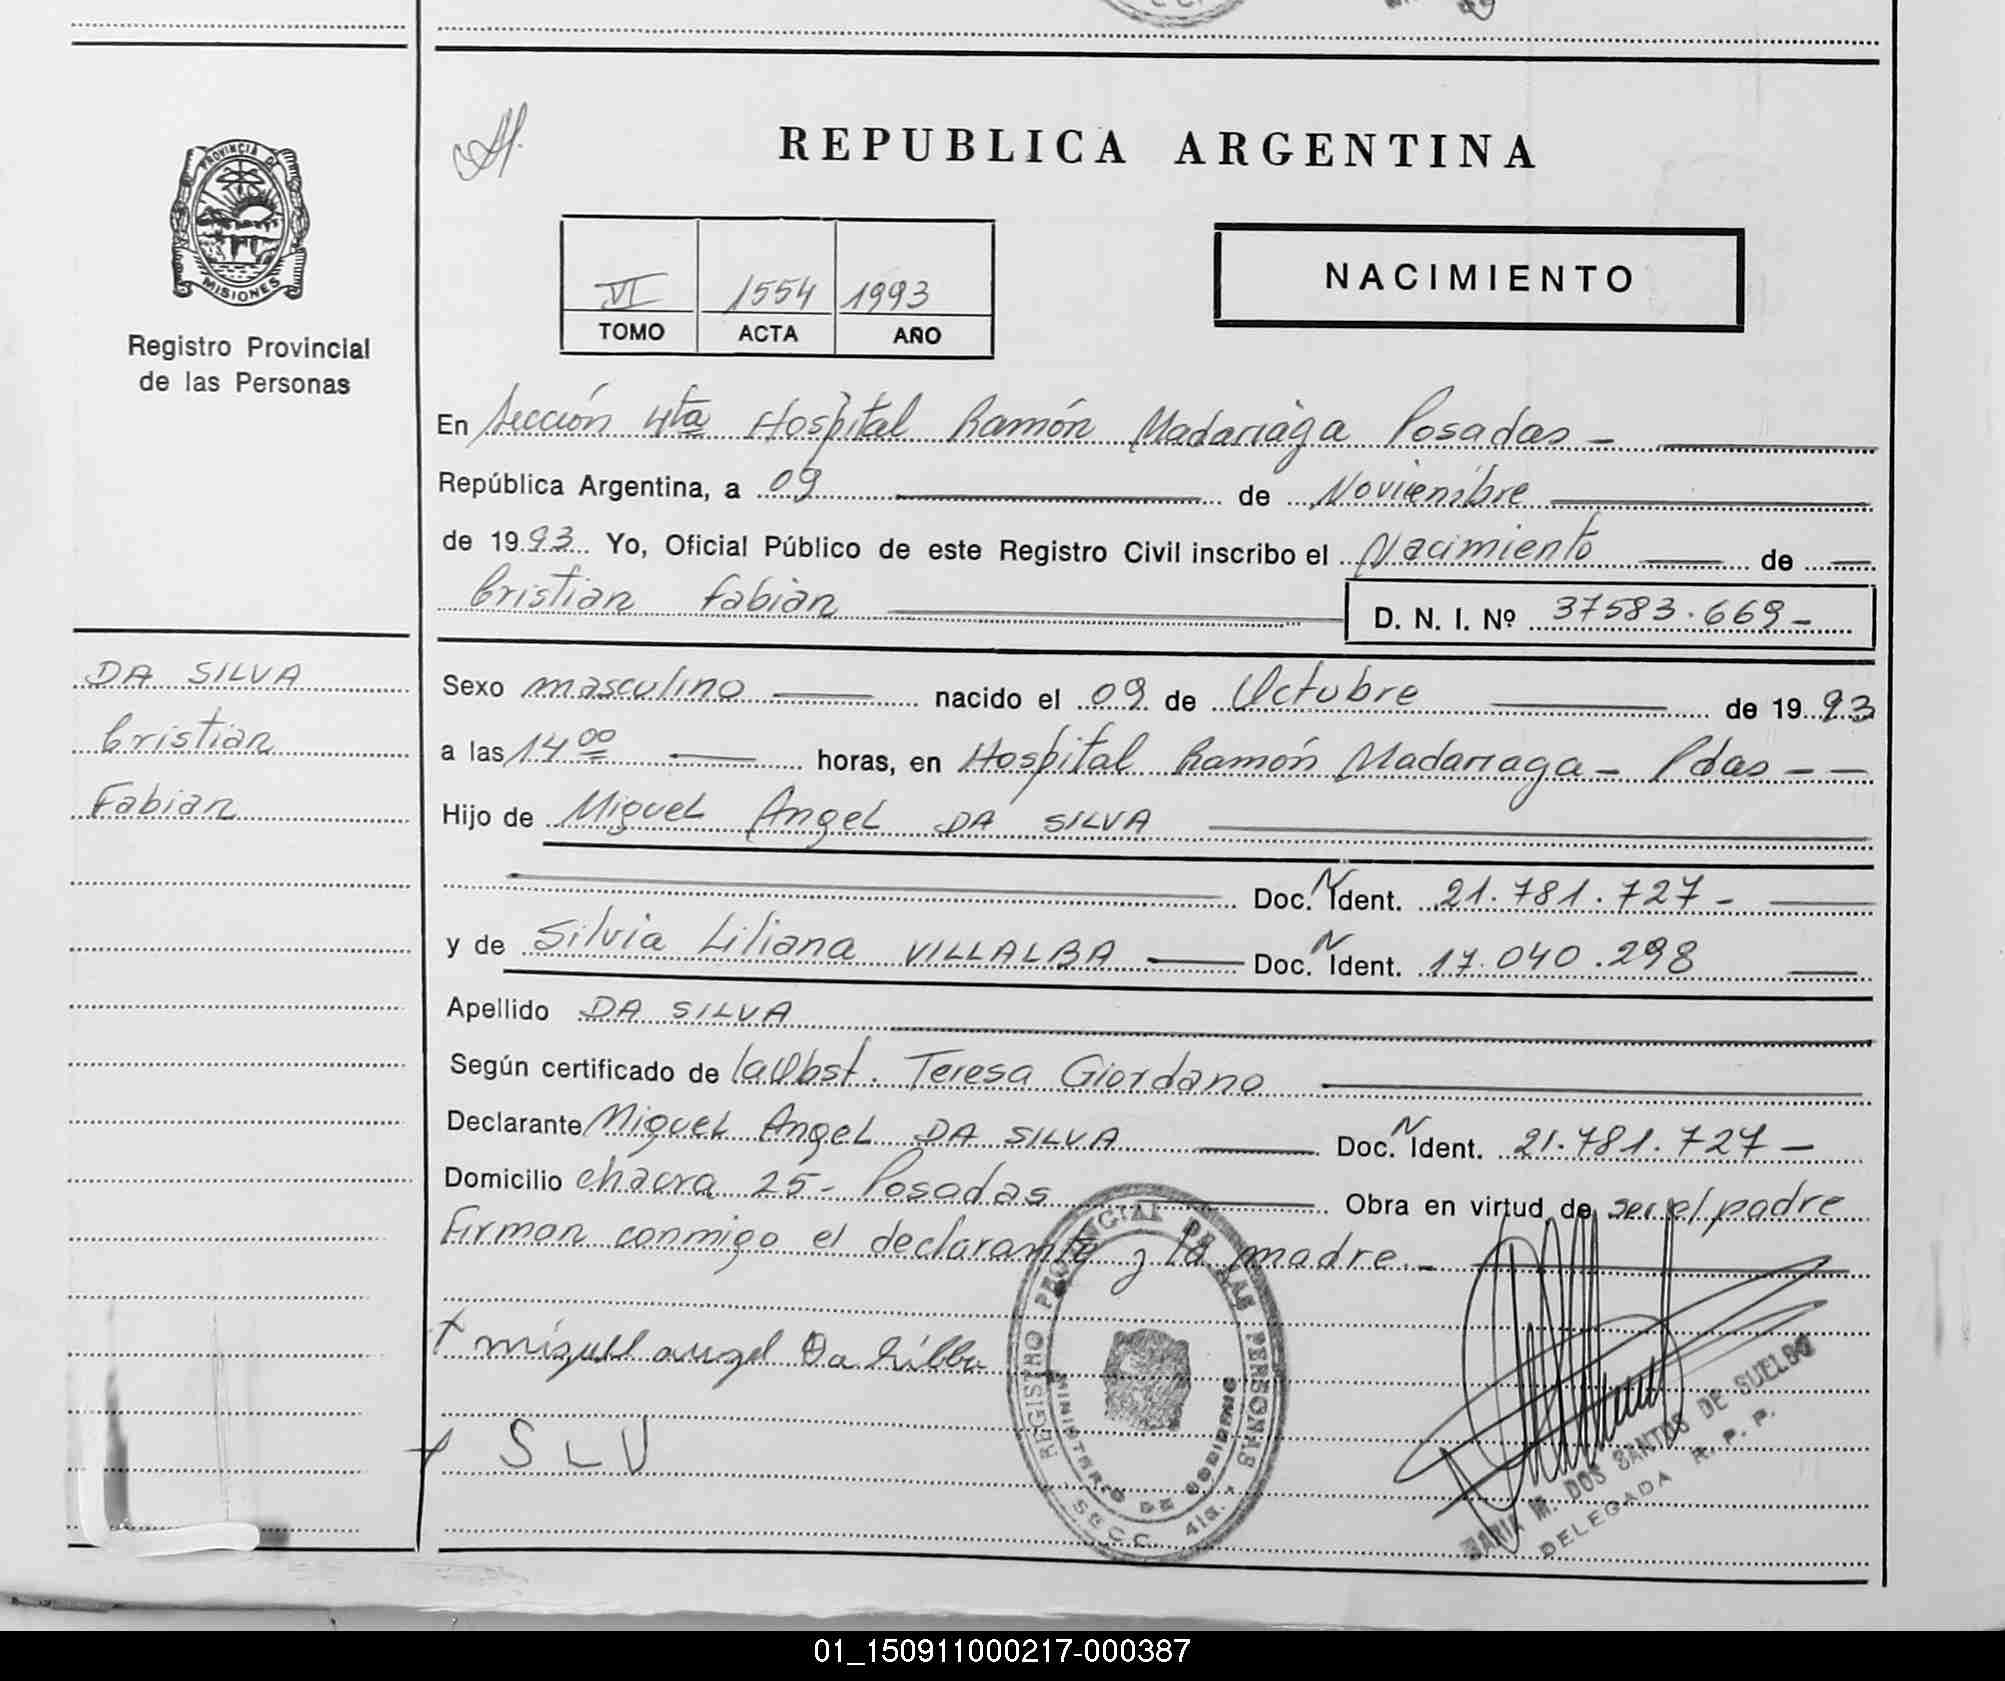 PROVINCIA DE
MISIONES
Registro Provincial
de las Personas
DA SILVA
Cristian
Fabian
REPUBLICA ARGENTINA
VI 1554 1993
TOMO ACTA AÑO
NACIMIENTO
En Sección 4ta Hospital Ramón Madariaga Posadas -
República Argentina, a 09 de Noviembre
de 1993 Yo, Oficial Público de este Registro Civil inscribo el Nacimiento de
Cristian Fabian D. N. I. Nº 37583.669-
Sexo masculino nacido el 09 de Octubre de 1993
a las 14 00 horas, en Hospital Ramón Madariaga - Pdas - -
Hijo de Miguel Angel DA SILVA
Doc. N Ident. 21.781.727-
y de Silvia Liliana VILLALBA Doc. N Ident. 17.040.298
Apellido DA SILVA
Según certificado de la Obst. Teresa Giordano
Declarante Miguel Angel DA SILVA Doc. N Ident. 21.781.727-
Domicilio chacra 25- Posadas Obra en virtud de ser el padre
Firman conmigo el declarante y la madre.-
miguel angel Da Silba
S L V
REGISTRO PROVINCIAL DE LAS PERSONAS
MINISTERIO DE GOBIERNO
SECC. 4ta.
MARIA M. DOS SANTOS DE SUELDO
DELEGADA R. P. P.
01_150911000217-000387